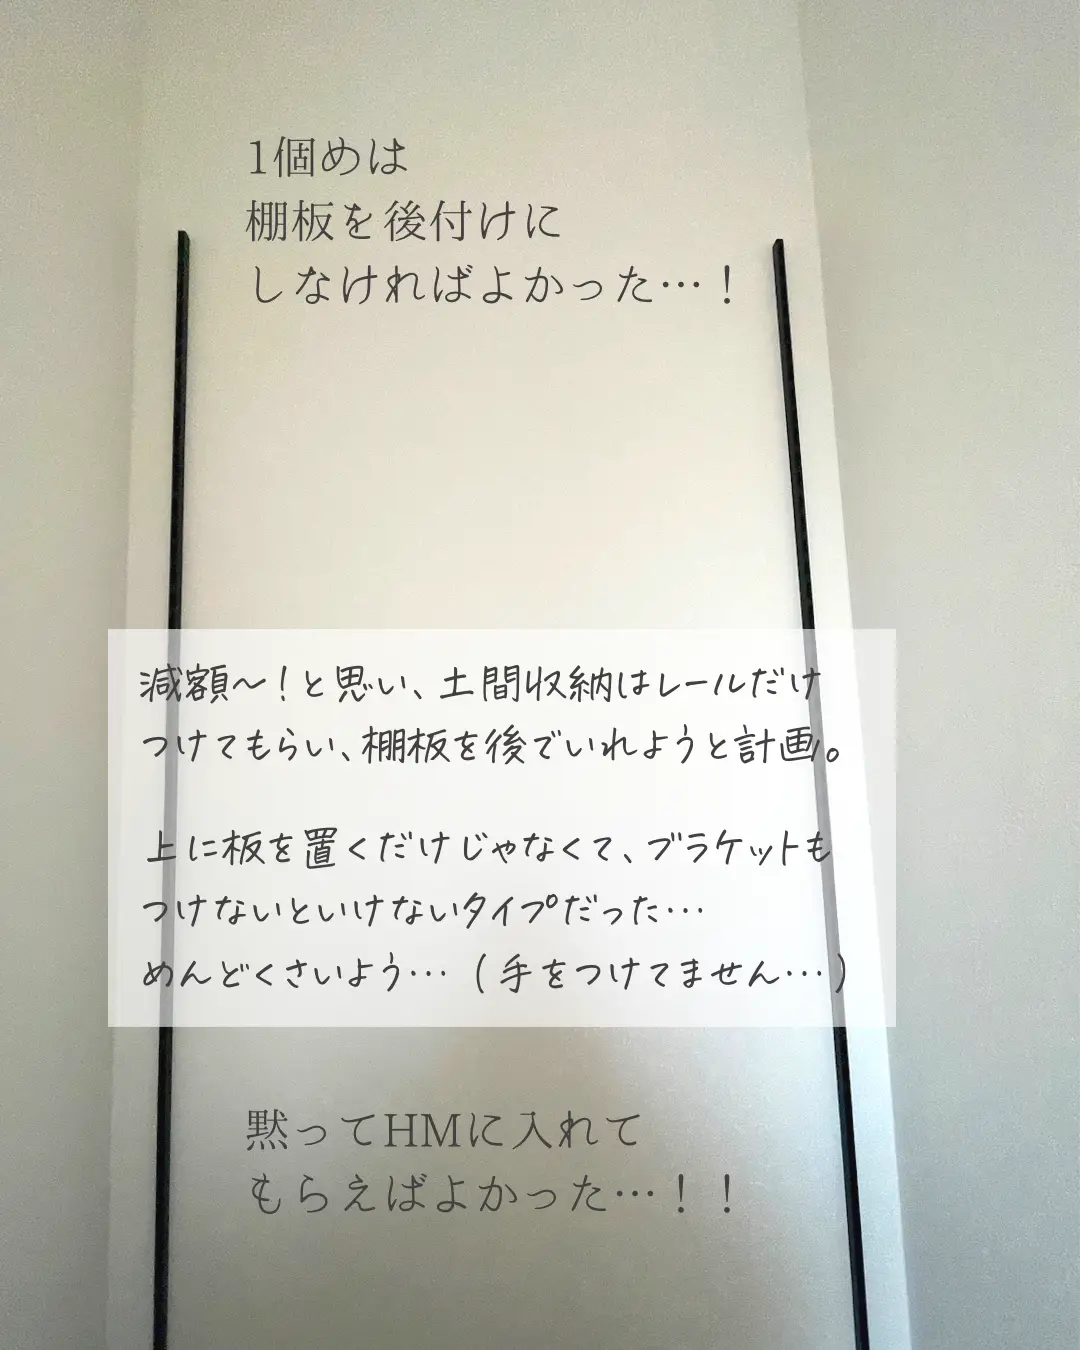 1個めは
棚板を後付けに
しなければよかった…！
減額〜！と思い、土間収納はレールだけ
つけてもらい、棚板を後でいれようと計画。
上に板を置くだけじゃなくて、ブラケットも
つけないといけないタイプだった…
めんどくさいよう…（手をつけてません…）
黙ってHMに入れて
もらえばよかった…！！